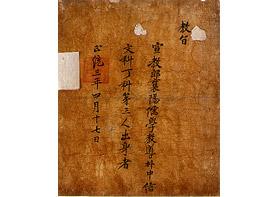 教旨
宣教郎襄陽儒學教導朴中信
文科丁科第三人出身者
正德三年四月十七日